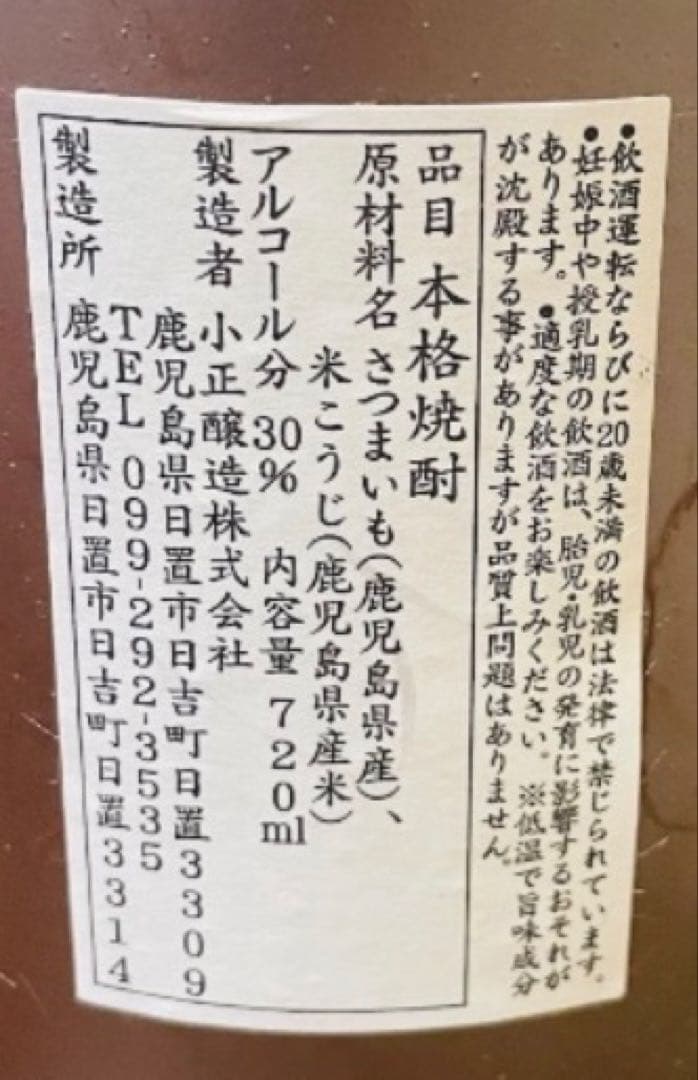 ●飲酒運転ならびに20歳未満の飲酒は法律で禁じられています。
●妊娠中や授乳期の飲酒は、胎児・乳児の発育に影響するおそれが
あります。●適度な飲酒をお楽しみください。※低温で旨味成分
が沈殿する事がありますが品質上問題はありません。
品目 本格焼酎
原材料名 さつまいも(鹿児島県産)、
米こうじ(鹿児島県産米)
アルコール分 30% 内容量 720ml
製造者 小正醸造株式会社
鹿児島県日置市日吉町日置3309
TEL 099-292-3535
製造所 鹿児島県日置市日吉町日置3314